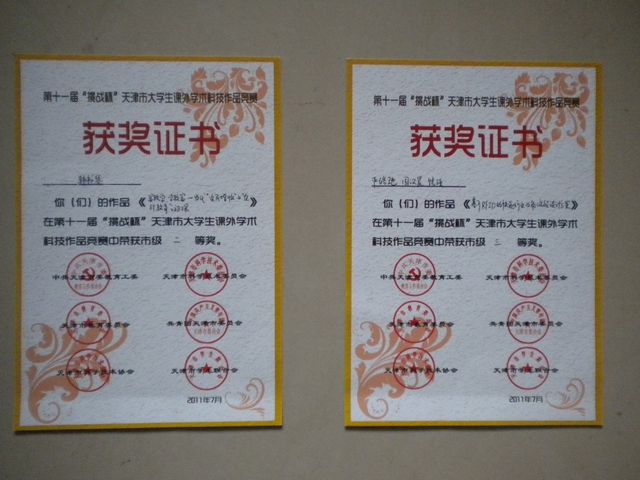 第十一届“挑战杯”天津市大学生课外学术科技作品竞赛
获奖证书
你（们）的作品《
在第十一届“挑战杯”天津市大学生课外学术
科技作品竞赛中荣获市级 二 等奖。
中共天津市委教育工委
天津市科学技术委员会
天津市教育委员会
共青团天津市委员会
天津市科学技术协会
天津市学生联合会
2011年7月
第十一届“挑战杯”天津市大学生课外学术科技作品竞赛
获奖证书
你（们）的作品《
在第十一届“挑战杯”天津市大学生课外学术
科技作品竞赛中荣获市级 三 等奖。
中共天津市委教育工委
天津市科学技术委员会
天津市教育委员会
共青团天津市委员会
天津市科学技术协会
天津市学生联合会
2011年7月